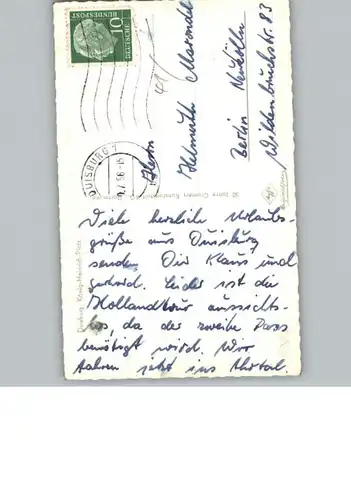 10
DEUTSCHE
BUNDESPOST
DUISBURG 1
.7.56.-15
Herrn
Helmuth
Berlin Neukölln
Wildenbruchstr. 83
Duisburg König-Heinrich-Platz
Viele herzliche Urlaubs-
grüße aus Duisburg
senden Dir Klaus und
Gerhard. Leider ist die
Hollandtour aussichts-
los, da der zweite Pass
benötigt wird. Wir
fahren jetzt ins Ahrtal.